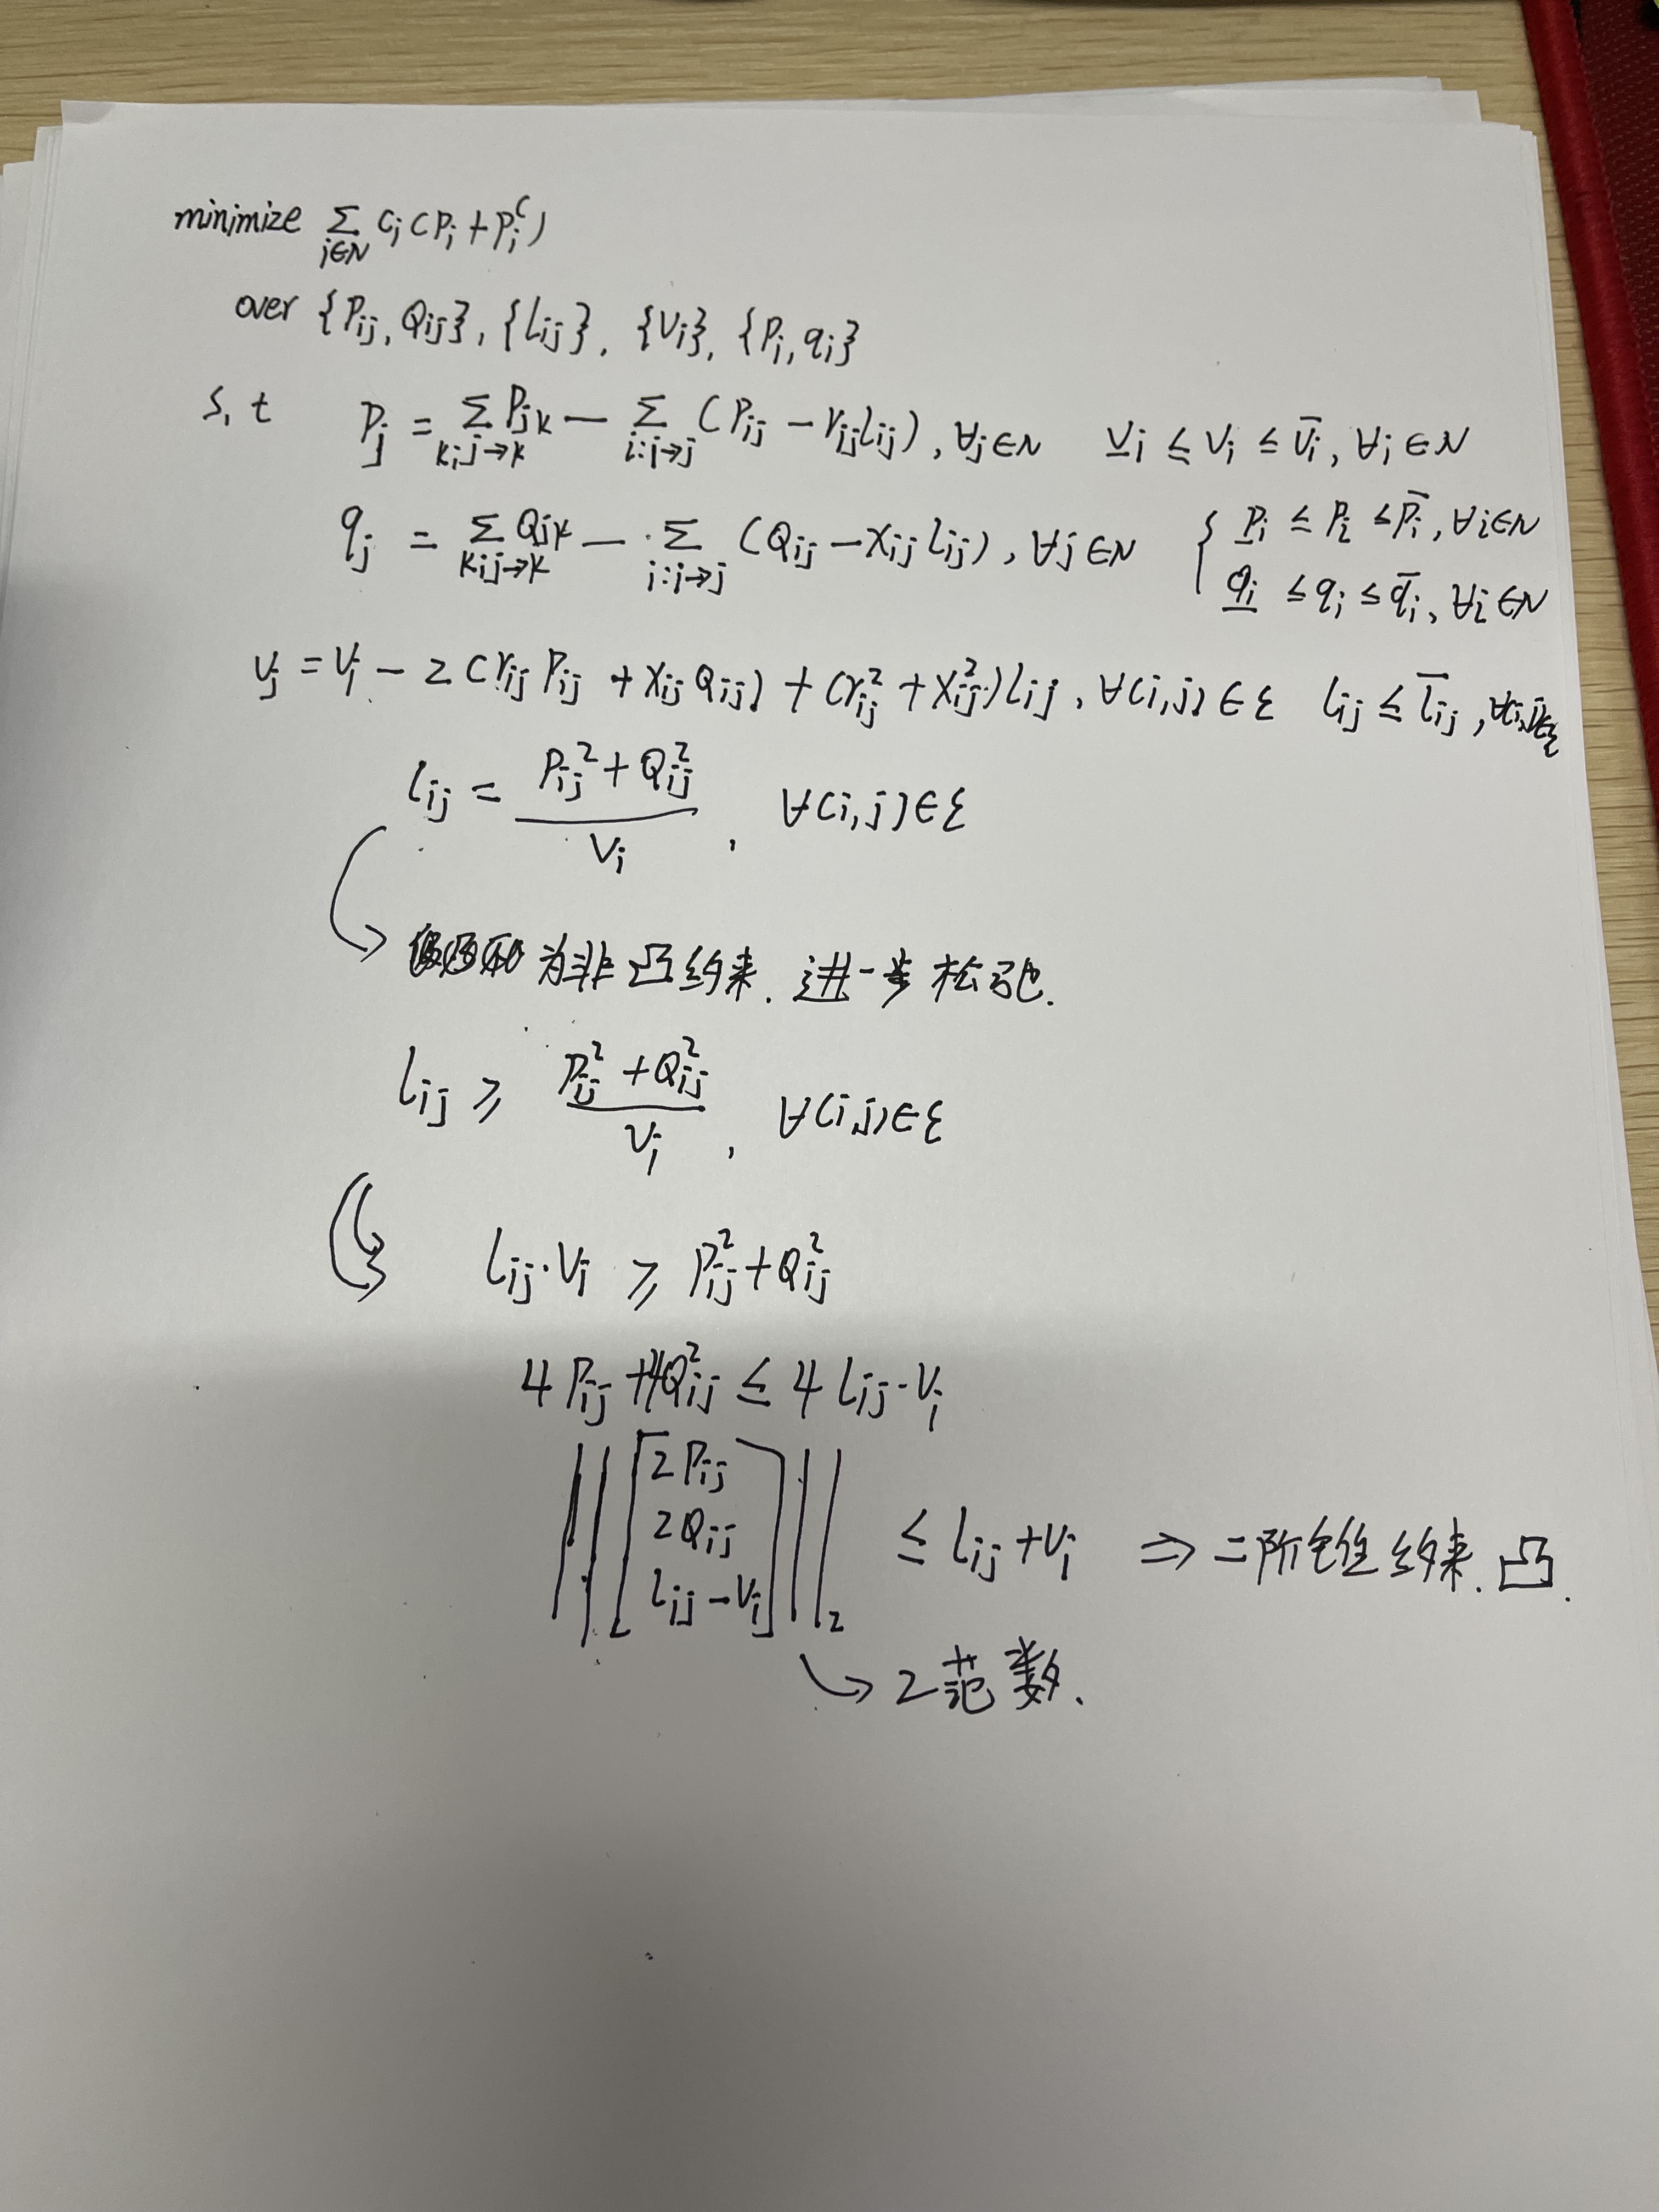 minimize Σ_{i∈N} C_i (P_i + P_i^C)
over {P_ij, Q_ij}, {l_ij}, {V_i}, {P_i, q_i}
s,t P_j = Σ_{k:j→k} P_jk − Σ_{i:i→j} (P_ij − r_ij l_ij), ∀j∈N V̲_i ≤ V_i ≤ V̄_i, ∀i∈N
q_j = Σ_{k:j→k} Q_jk − Σ_{i:i→j} (Q_ij − x_ij l_ij), ∀j∈N { P̲_i ≤ P_i ≤ P̄_i, ∀i∈N
q̲_i ≤ q_i ≤ q̄_i, ∀i∈N
V_j = V_i − 2(r_ij P_ij + x_ij Q_ij) + (r_ij² + x_ij²) l_ij, ∀(i,j)∈ε l_ij ≤ l̄_ij, ∀(i,j)∈ε
l_ij = (P_ij² + Q_ij²) / V_i, ∀(i,j)∈ε
为非凸约束. 进一步松弛.
l_ij ≥ (P_ij² + Q_ij²) / V_i, ∀(i,j)∈ε
l_ij·V_i ≥ P_ij² + Q_ij²
4P_ij + 4Q_ij² ≤ 4l_ij·V_i
‖[2P_ij
2Q_ij
l_ij − V_i]‖₂ ≤ l_ij + V_i ⇒ 二阶锥约束. 凸.
2范数.